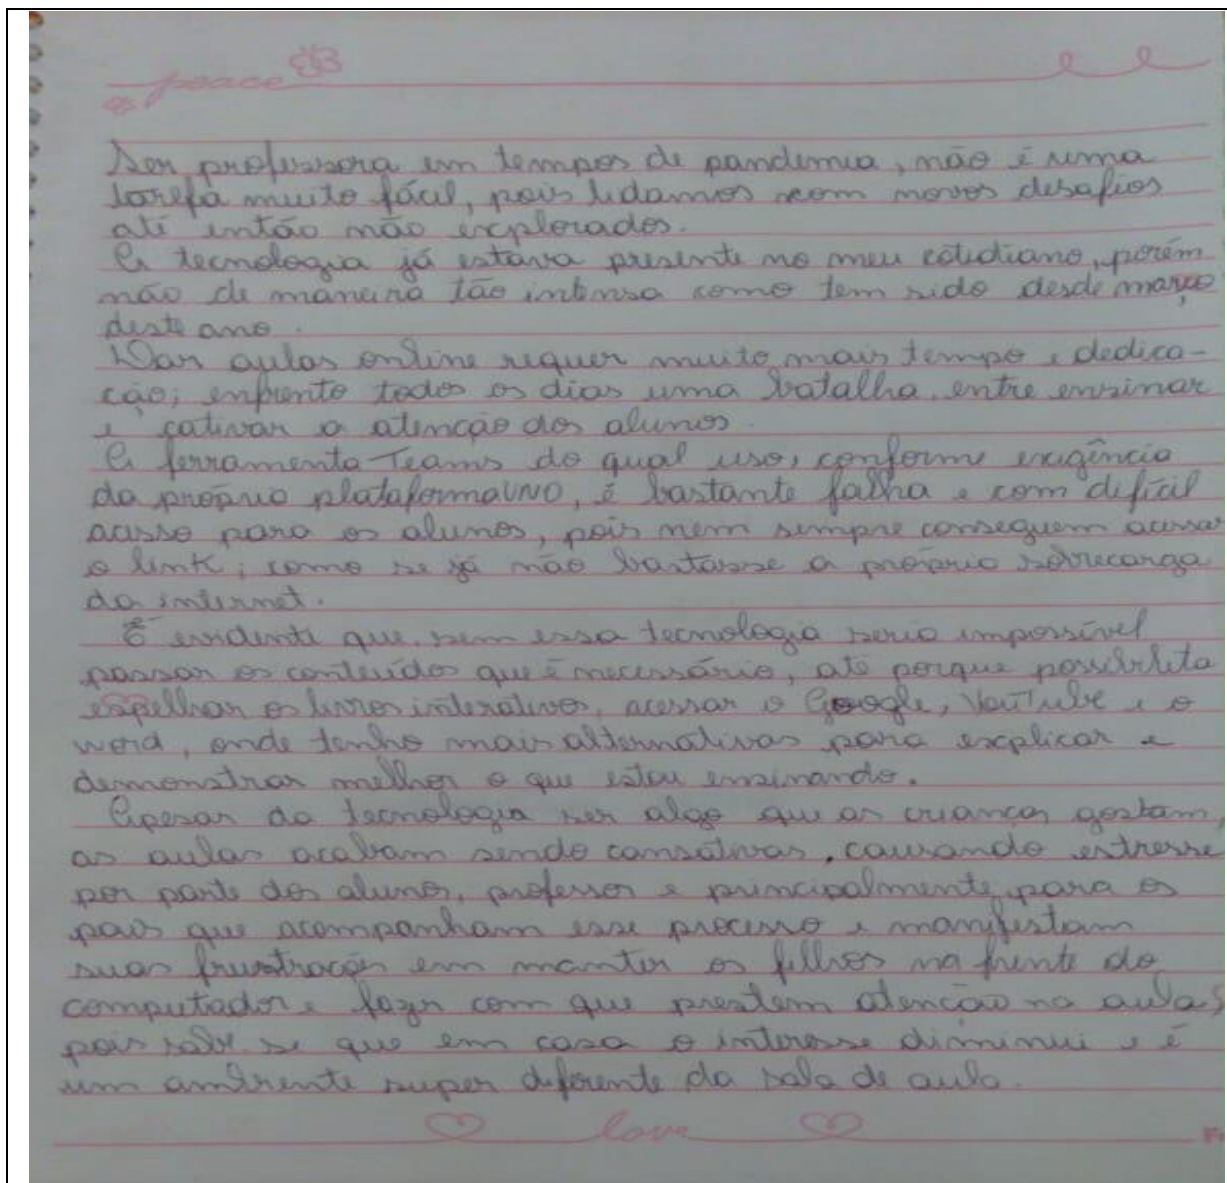 peace
Ser professora em tempos de pandemia, não é uma
tarefa muito fácil, pois lidamos com novos desafios
até então não explorados.
A tecnologia já estava presente no meu cotidiano, porém
não de maneira tão intensa como tem sido desde março
deste ano.
Dar aulas online requer muito mais tempo e dedica-
ção; enfrento todos os dias uma batalha, entre ensinar
e cativar a atenção dos alunos.
A ferramenta Teams do qual uso, conforme exigência
da própria plataforma UNO, é bastante falha e com difícil
acesso para os alunos, pois nem sempre conseguem acessar
o link; como se já não bastasse a própria sobrecarga
da internet.
É evidente que sem essa tecnologia seria impossível
passar os conteúdos que é necessário, até porque possibilita
espelhar os livros interativos, acessar o Google, YouTube e o
word, onde tenho mais alternativas para explicar e
demonstrar melhor o que estou ensinando.
Apesar da tecnologia ser algo que as crianças gostam,
as aulas acabam sendo cansativas, causando estresse
por parte dos alunos, professor e principalmente para os
pais que acompanham esse processo e manifestam
suas frustrações em manter os filhos na frente do
computador e fazer com que prestem atenção na aula,
pois sabe-se que em casa o interesse diminui e é
um ambiente super diferente da sala de aula.
love